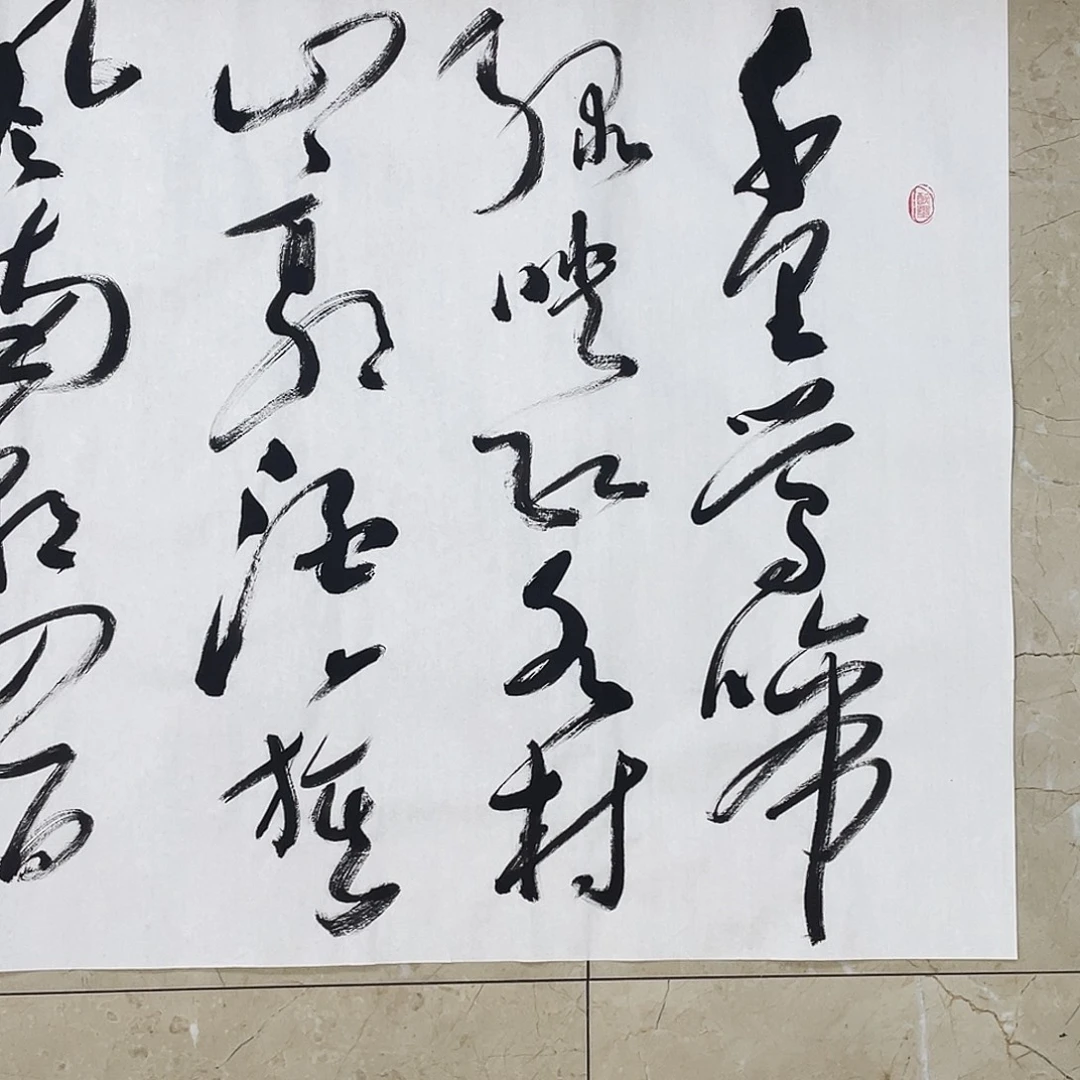 千里莺啼
绿映红水村
山郭酒旗
风南朝四百